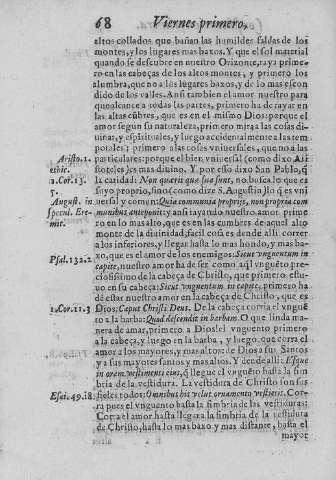 68 Viernes primero,
altos collados que bañan las humildes faldas de los
montes, y los lugares mas baxos. Y que el sol material
quando se descubre en nuestro Orizonte, raya prime-
ro en las cabeças de los altos montes, y primero los
alumbra, que no a los lugares baxos, y de lo mas escon
dido de los valles. Ansi tambien el amor nuestro para
que alcance a todas las partes, primero ha de rayar en
las altas cũbres, que es en el mismo Dios: porque el
amor segun su naturaleza, primero mira las cosas di-
uinas, y espirituales, y luego accidentalmente a las tem
porales; primero a las cosas vniuersales, que no a las
Aristo. 1. particulares: porque el bien vniuersal (como dixo Ari
ethic. stoteles) es mas diuino. Y por esso dixo San Pablo, q̃
1. Cor. 13. la caridad: Non quærit quæ sua sunt, no busca lo que es
5. suyo proprio, sino (como dize S. Augustin) lo q̃ es vni
August. in uersal y comun: Quia communia proprijs, non propria com
specul. Ere- munibus anteponit: y ansi rayando nuestro amor prime
mit. ro en lo mas alto, que es en las cumbres de aquel alto
monte de la diuinidad, facil cosa es dende alli correr
a los inferiores, y llegar hasta lo mas hondo, y mas ba-
xo, que es el amor de los enemigos: Sicut vnguentum in
Psal. 132. 2 capite, nuestro amor ha de ser como aql̃ vnguẽto pre-
ciosissimo de la cabeça de Christo, que primero estu-
uo en su cabeça: Sicut vnguentum in capite, primero ha
dẽ estar nuestro amor en la cabeça de Christo, que es
1. Cor. 11. 3 Dios: Caput Christi Deus. De la cabeça corria el vnguẽ
to a la barba: Quod descendit in barbam. O que linda ma-
nera de amar, primero a Dios! el vnguento primero
a la cabeça, y luego en la barba, y luego que corra el
amor a los mayores, y mas altos de Dios a sus Santos
y a sus mayores santos y mas altos. Y dende alli: Et que
in oram vestimenti eius, q̃ llegue el vnguẽto hasta la fim
bria de la vestidura. La vestidura de Christo son sus
Esai. 49. 18 fieles todos: Omnibus his velut ornamento vestieris. Cor-
ra pues el vnguento hasta la fimbria de las vestiduras:
Corra el amor hasta llegar a la fimbria de la vestidura
de Christo, hasta lo mas baxo y mas distante, hasta el
mayor